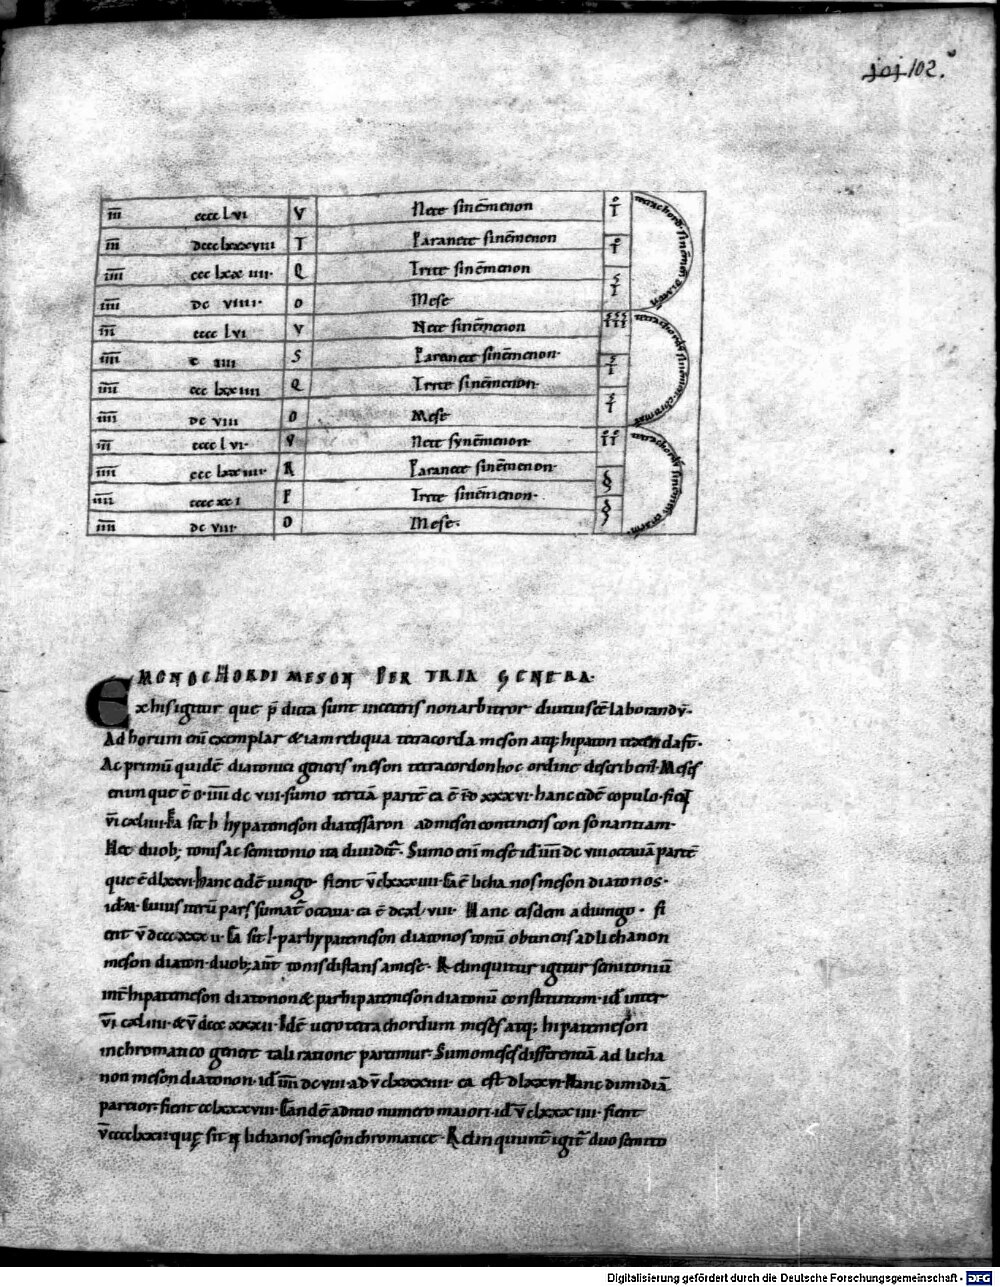 101 102.
III̅ cccc Lvi V Nete sinēmenon
III̅ dccc Lxxxviii T Paranete sinēmenon
IIII̅ ccc Lxx iiii· Q Trite sinēmenon
IIII̅ DC VIIII· O Mese
III̅ cccc Lvi V Nete sinēmenon
IIII̅ c iiii S Paranete sinēmenon·
IIII̅ ccc Lxxiiii Q Trite sinēmenon·
IIII̅ DC VIII O Mese
III̅ cccc L vi· V Nete synēmenon·
IIII̅ ccc Lxx iiii· R Paranete sinēmenon·
IIII̅ cccc xx i P Trite sinēmenon·
IIII̅ DC VIII· O Mese·
MONOCHORDI MESON PER TRIA GENERA·
Ex his igitur que p̄ dicta sunt inceteris non arbitror diutius eē laborandū·
Ad horum eni̅ exemplar & iam reliqua tetracorda meson atq; hipaton texenda sunt·
Ac primū quidē diatonici generis meson tetracordon hoc ordine describem̄· Meses
enim que ē o· IIII̅ dc viii· sumo tertiā partē ea ē ī d xxxvi· hanc eidē copulo· fient
VI̅ cxliiii· Ea sit h hypatemeson diatessaron ad mesen continens consonantiam·
Hec duob; tonis ac semitonio ita diuiditur· Sumo eni̅ mese id ē IIII̅ dc viii octauā partē
que ē dlxxvi· hanc eidē iungo· fient V̅ clxxxiiii· Ea ē licha nos meson diatonos·
id ē M· Euius iterū pars sumat̄ octaua· ea ē dcxl· viii· Hanc eisdem adiungo· fi
ent V̅ dccc·xxx ii· Ea sit l· parhypatemeson diatonos tonū obtinens ad lichanon
meson diaton· duob; aut̄ tonis distans a mese· Relinquitur igitur semitoniū
int̄ hipatemeson diatonon & parhipatemeson diatonū constitutum· id ē inter
VI̅ cxliiii· & V̅ dccc xxxii· Idē uero tetrachordum meses atq; hipatemeson
in chromatico genere tali ratione partimur· Sumo meses differentiā ad licha
non meson diatonon· id ē IIII̅ dc viii· ad V̅ clxxxiiii· ea est dlxxvi· Hanc dimidiā
partior· fient cclxxxviii· Eandē addo numero maiori· id ē V̅ clxxxiiii· fient
V̅ cccclxxii que sit N lichanos meson chromatice· Relinquunt̄ igit̄ duo semito
Digitalisierung gefördert durch die Deutsche Forschungsgemeinschaft - DFG